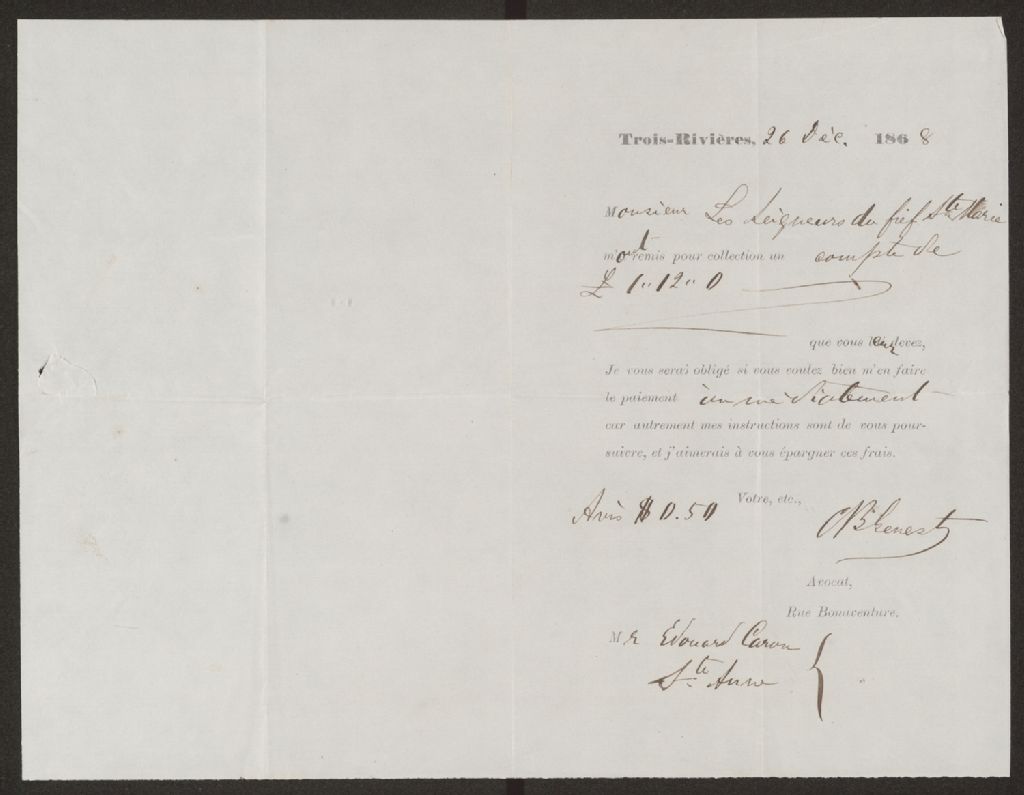 Trois-Rivières, 26 Déc. 1868
Monsieur Les Seigneurs du fief Ste Marie
m'ont remis pour collection un compte de
£ 1" 12" 0
que vous leur devez,
Je vous serai obligé si vous voulez bien m'en faire
le paiement immédiatement
car autrement mes instructions sont de vous pour-
suivre, et j'aimerais à vous épargner ces frais.
Votre, etc.,
Avis $0.50
Genest
Avocat,
Rue Bonaventure.
Mr Edouard Caron
Ste Anne